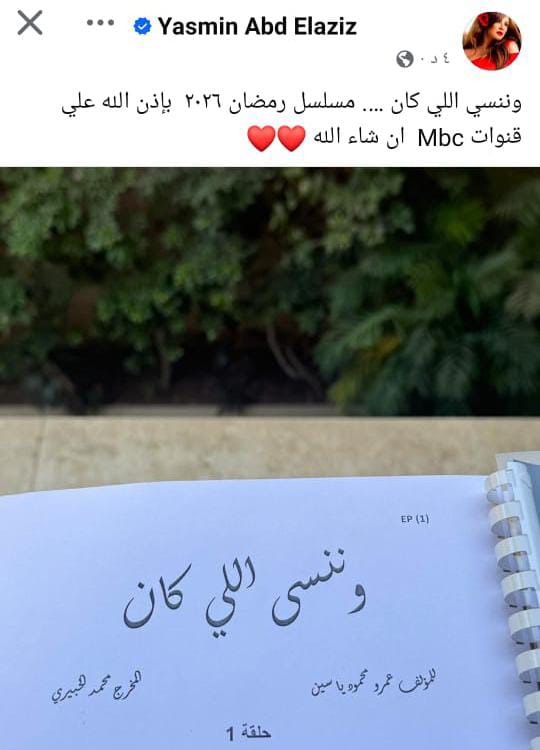 Yasmin Abd Elaziz
٤ د ·
وننسي اللي كان .... مسلسل رمضان ٢٠٢٦ بإذن الله علي
قنوات Mbc ان شاء الله ❤️❤️
EP (1)
وننسى اللي كان
للمؤلف عمرو محمود ياسين
المخرج محمد الخبيري
حلقة 1